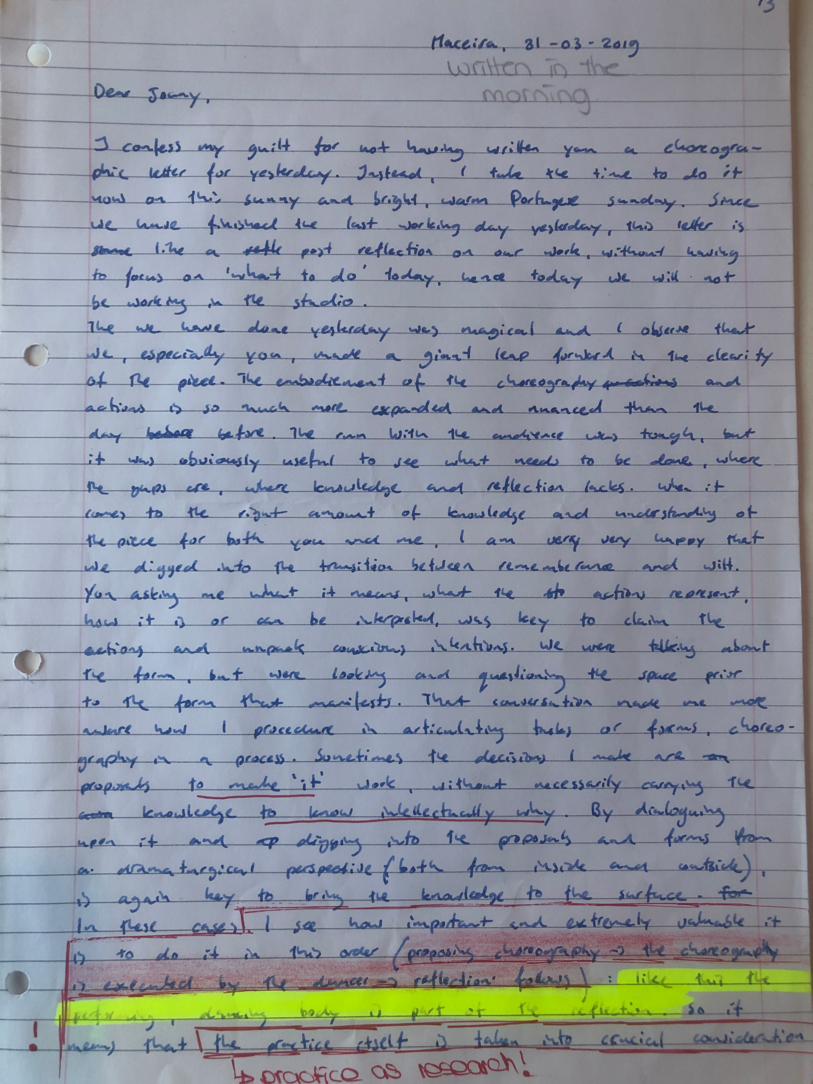 13
Maceira, 31-03-2019
written in the
morning
Dear Joany,
I confess my guilt for not having written you a choreogra-
phic letter for yesterday. Instead, I take the time to do it
now on this sunny and bright, warm Portugese sunday. Since
we have finished the last working day yesterday, this letter is
like a post reflection on our work, without having
to focus on 'what to do' today, hence today we will not
be working in the studio.
The we have done yesterday was magical and I observe that
we, especially you, made a giant leap forward in the clearity
of the piece. The embodiement of the choreography and
actions is so much more expanded and nuanced than the
day before. The run with the audience was tough, but
it was obviously useful to see what needs to be done, where
the gaps are, where knowledge and reflection lacks. When it
comes to the right amount of knowledge and understanding of
the piece for both you and me, I am very very happy that
we digged into the transition between rememberance and will.
You asking me what it means, what the actions represent,
how it is or can be interpreted, was key to claim the
actions and unpack conscious intentions. We were talking about
the form, but were looking and questioning the space prior
to the form that manifests. That conversation made me more
aware how I procedure in articulating tasks or forms, choreo-
graphy in a process. Sometimes the decisions I make are
proposals to make 'it' work, without necessarily carrying the
knowledge to know intellectually why. By dialoguing
upon it and digging into the proposals and forms from
a dramaturgical perspective (both from inside and outside),
is again key to bring the knowledge to the surface.
In these cases, I see how important and extremely valuable it
is to do it in this order (proposing choreography → the choreography
is executed by the dancer → reflection follows) : like this the
performing, dancing body is part of the reflection. So it
! means that the practice itself is taken into crucial consideration
↳ practice as research!